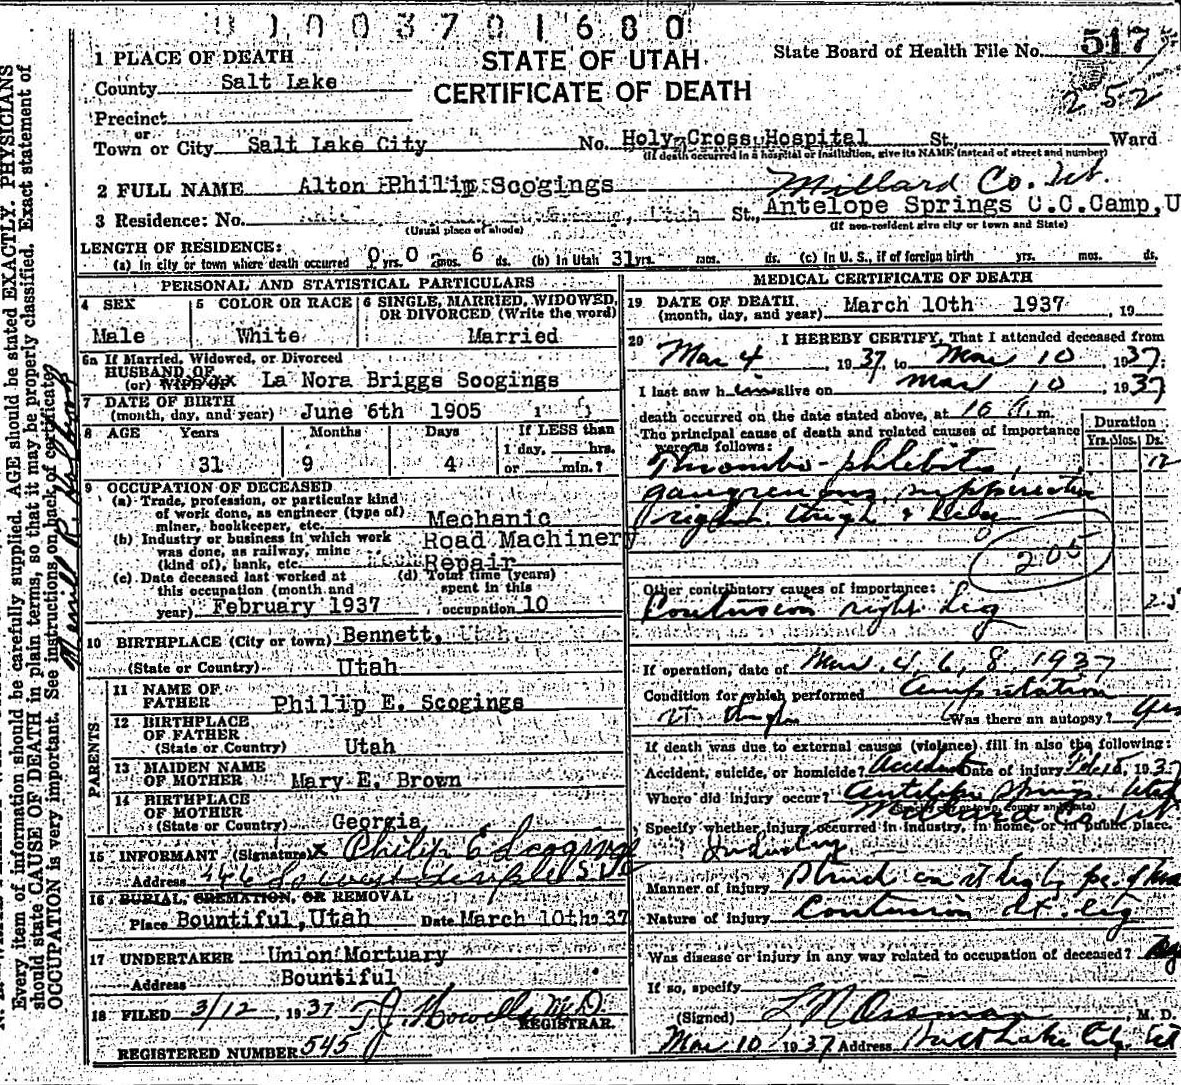 0 1 0 0 3 7 0 1 6 8 0
1 PLACE OF DEATH
STATE OF UTAH
State Board of Health File No. 517
County Salt Lake
CERTIFICATE OF DEATH
252
Precinct
or
Town or City Salt Lake City No. Holy Cross Hospital St., Ward
(If death occurred in a hospital or institution, give its NAME instead of street and number)
2 FULL NAME Alton Philip Scogings
Millard Co. Ut.
3 Residence: No. Utah St., Antelope Springs C.C.Camp,U
(Usual place of abode) (If non-resident give city or town and State)
LENGTH OF RESIDENCE:
(a) In city or town where death occurred 0 yrs. 0 mos. 6 ds. (b) In Utah 31 yrs. mos. ds. (c) In U. S., if of foreign birth yrs. mos. ds.
PERSONAL AND STATISTICAL PARTICULARS
4 SEX
Male
5 COLOR OR RACE
White
6 SINGLE, MARRIED, WIDOWED,
OR DIVORCED (Write the word)
Married
6a If Married, Widowed, or Divorced
HUSBAND OF
(or) WIFE OF La Nora Briggs Scogings
7 DATE OF BIRTH
(month, day, and year) June 6th 1905
8 AGE Years Months Days If LESS than
1 day, hrs.
31 9 4 or min.?
9 OCCUPATION OF DECEASED
(a) Trade, profession, or particular kind
of work done, as engineer (type of)
miner, bookkeeper, etc. Mechanic
(b) Industry or business in which work Road Machinery
was done, as railway, mine
(kind of), bank, etc. Repair
(c) Date deceased last worked at (d) Total time (years)
this occupation (month and spent in this
year) February 1937 occupation 10
10 BIRTHPLACE (City or town) Bennett, Utah
(State or Country) Utah
PARENTS
11 NAME OF
FATHER Philip E. Scogings
12 BIRTHPLACE
OF FATHER
(State or Country) Utah
13 MAIDEN NAME
OF MOTHER Mary E. Brown
14 BIRTHPLACE
OF MOTHER
(State or Country) Georgia
15 INFORMANT (Signature) x Philip E Scogings
Address 446 So West Temple S.L.C
16 BURIAL, CREMATION, OR REMOVAL
Place Bountiful, Utah Date March 10th 37
17 UNDERTAKER Union Mortuary
Address Bountiful
18 FILED 3/12, 1937 T.J. Howells M.D
REGISTRAR.
REGISTERED NUMBER 545
MEDICAL CERTIFICATE OF DEATH
19 DATE OF DEATH
(month, day, and year) March 10th 1937, 19
20 I HEREBY CERTIFY, That I attended deceased from
Mar 4, 1937, to Mar 10, 1937.
I last saw him alive on Mar 10, 1937
death occurred on the date stated above, at 10 A. m.
The principal cause of death and related causes of importance
were as follows:
Duration
Yrs. Mos. Ds.
Thrombo-phlebitis, 12
gangrenous, suppurative
right thigh & leg
205
Other contributory causes of importance:
Contusion right leg 25
If operation, date of Mar. 4, 6, 8, 1937
Condition for which performed Amputation
rt thigh Was there an autopsy? Yes
If death was due to external causes (violence) fill in also the following:
Accident, suicide, or homicide? Accident Date of injury Feb 15, 1937
Where did injury occur? Antelope Springs Utah
(Specify city or town, county and State)
Millard Co Ut.
Specify whether injury occurred in industry, in home, or in public place.
Industry
Manner of injury Struck on rt leg by pc. of
Nature of injury Contusion rt. leg
Was disease or injury in any way related to occupation of deceased?
If so, specify
(Signed) L N Ossman, M. D.
Mar 10 1937 Address Salt Lake City Ut
Every item of information should be carefully supplied. AGE should be stated EXACTLY. PHYSICIANS
should state CAUSE OF DEATH in plain terms, so that it may be properly classified. Exact statement of
OCCUPATION is very important. See instructions on back of certificate.
Merrill R.